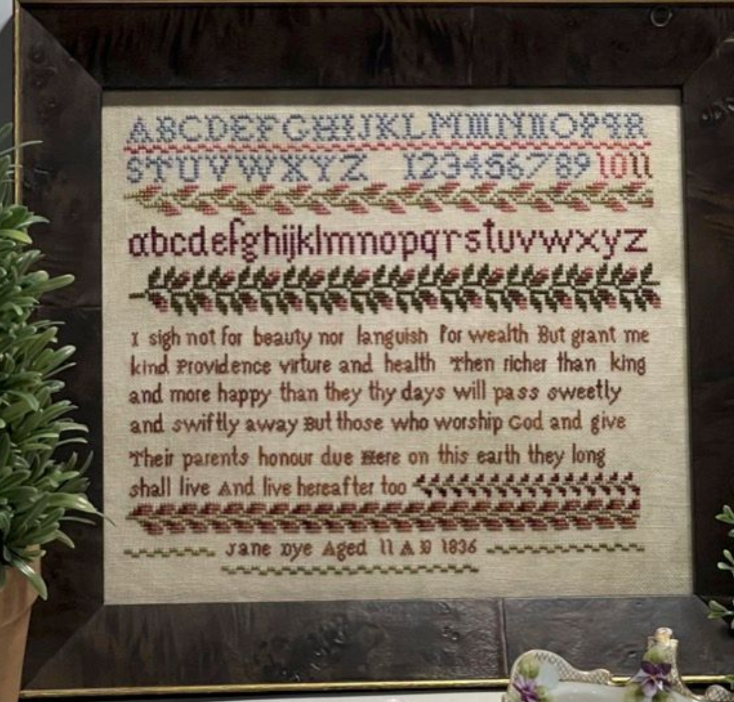 ABCDEFGHIJKLMNOPQR
STUVWXYZ 1234567891011
abcdefghijklmnopqrstuvwxyz
I sigh not for beauty nor languish for wealth But grant me
kind Providence virture and health Then richer than king
and more happy than they thy days will pass sweetly
and swiftly away But those who worship God and give
Their parents honour due Here on this earth they long
shall live And live hereafter too
Jane Dye Aged 11 AD 1836